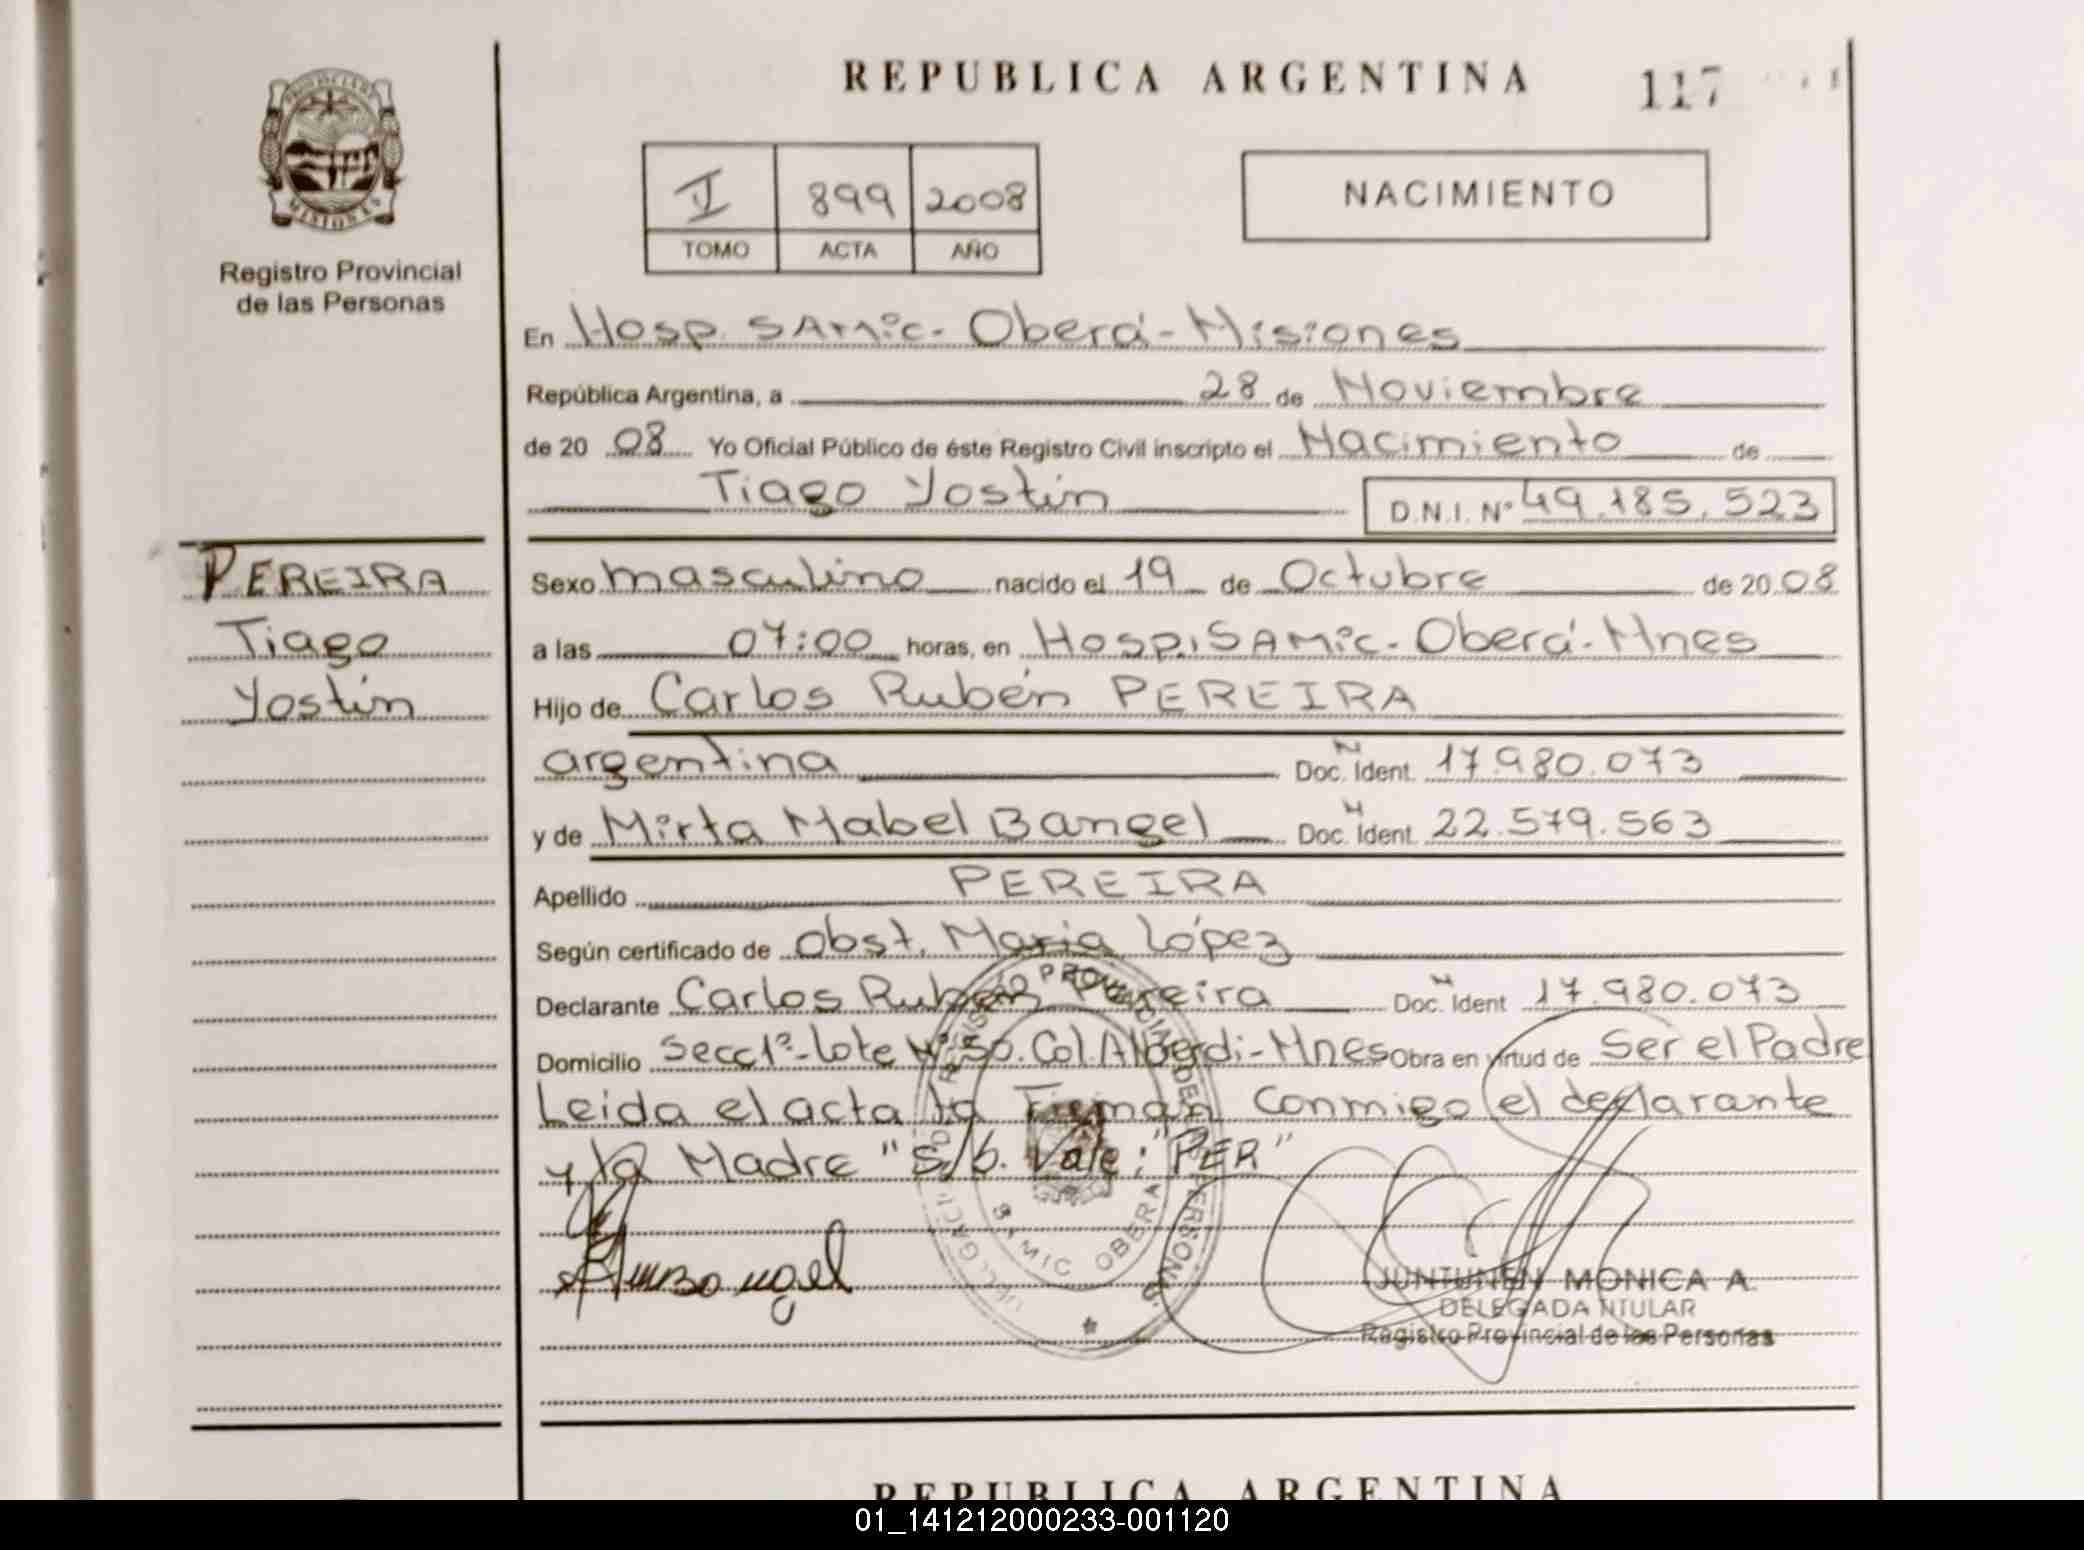 REPUBLICA ARGENTINA
117
PROVINCIA DE
MISIONES
Registro Provincial
de las Personas
II 899 2008
TOMO ACTA AÑO
NACIMIENTO
En Hosp. SAMic - Oberá - Misiones
República Argentina, a 28 de Noviembre
de 20 08 Yo Oficial Público de éste Registro Civil inscripto el Nacimiento de
Tiago Yostin D.N.I. Nº 49.185.523
PEREIRA
Tiago
Yostin
Sexo masculino nacido el 19 de Octubre de 20 08
a las 07:00 horas, en Hosp. SAMic - Oberá - Mnes
Hijo de Carlos Rubén PEREIRA
argentina Doc. Ident. N 17.980.073
y de Mirta Mabel Bangel Doc. Ident. N 22.579.563
Apellido PEREIRA
Según certificado de Obst. Maria López
Declarante Carlos Ruben Pereira Doc. Ident N 17.980.073
Domicilio Secc 1ª - Lote Nº 50. Col. Alberdi - Mnes Obra en virtud de Ser el Padre
Leida el acta la Firman Conmigo el declarante
y la Madre "S/b. Vale: "PER"
SAMIC OBERA
JUNTUNEN MONICA A.
DELEGADA TITULAR
Registro Provincial de las Personas
REPUBLICA ARGENTINA
01_141212000233-001120